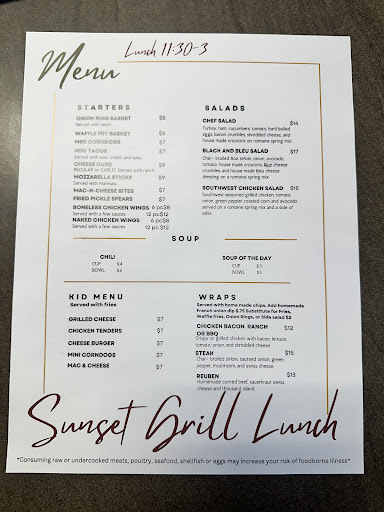 Menu
Lunch 11:30-3
STARTERS
ONION RING BASKET $8
Served with ranch
WAFFLE FRY BASKET $6
MINI CORNDOGS $7
MINI TACOS $7
Served with sour cream and salsa
CHEESE CURD $9
REGULAR or GARLIC Served with ranch
MOZZARELLA STICKS $9
Served with Marinara
MAC-N-CHEESE BITES $7
FRIED PICKLE SPEARS $7
BONELESS CHICKEN WINGS 6 pc$8
Served with a few sauces 12 pc$12
NAKED CHICKEN WINGS 6 pc$8
Served with a few sauces 12 pc $12
SALADS
CHEF SALAD $14
Turkey, ham, cucumbers, tomato, hard boiled
eggs, bacon crumbles, shredded cheese, and
house made croutons on romaine spring mix.
BLACK AND BLEU SALAD $17
Char- broiled 8oz sirloin, onion, avocado,
tomato, house made croutons, blue cheese
crumbles, and house made bleu cheese
dressing on a romaine spring mix
SOUTHWEST CHICKEN SALAD $15
Southwest seasoned grilled chicken, tomato,
onion, green pepper, roasted corn and avocado
served on a romaine spring mix and a side of
salsa
SOUP
CHILI
CUP $4
BOWL $6
SOUP OF THE DAY
CUP $3
BOWL $5
KID MENU
Served with fries
GRILLED CHEESE $7
CHICKEN TENDERS $7
CHEESE BURGER $7
MINI CORNDOGS $7
MAC & CHEESE $7
WRAPS
Served with home made chips. Add homemade
French onion dip $.75 Substitute for Fries,
Waffle fries, Onion Rings, or Side salad $2
CHICKEN BACON RANCH $12
OR BBQ
Crispy or grilled chicken with bacon, lettuce,
tomato, onion, and shredded cheese
STEAK $15
Char- broiled sirloin, sauteed onion, green
pepper, mushroom, and swiss cheese
REUBEN $13
Homemade corned beef, sauerkraut swiss
cheese and thousand island
Sunset Grill Lunch
*Consuming raw or undercooked meats, poultry, seafood, shellfish or eggs may increase your risk of foodborne illness*